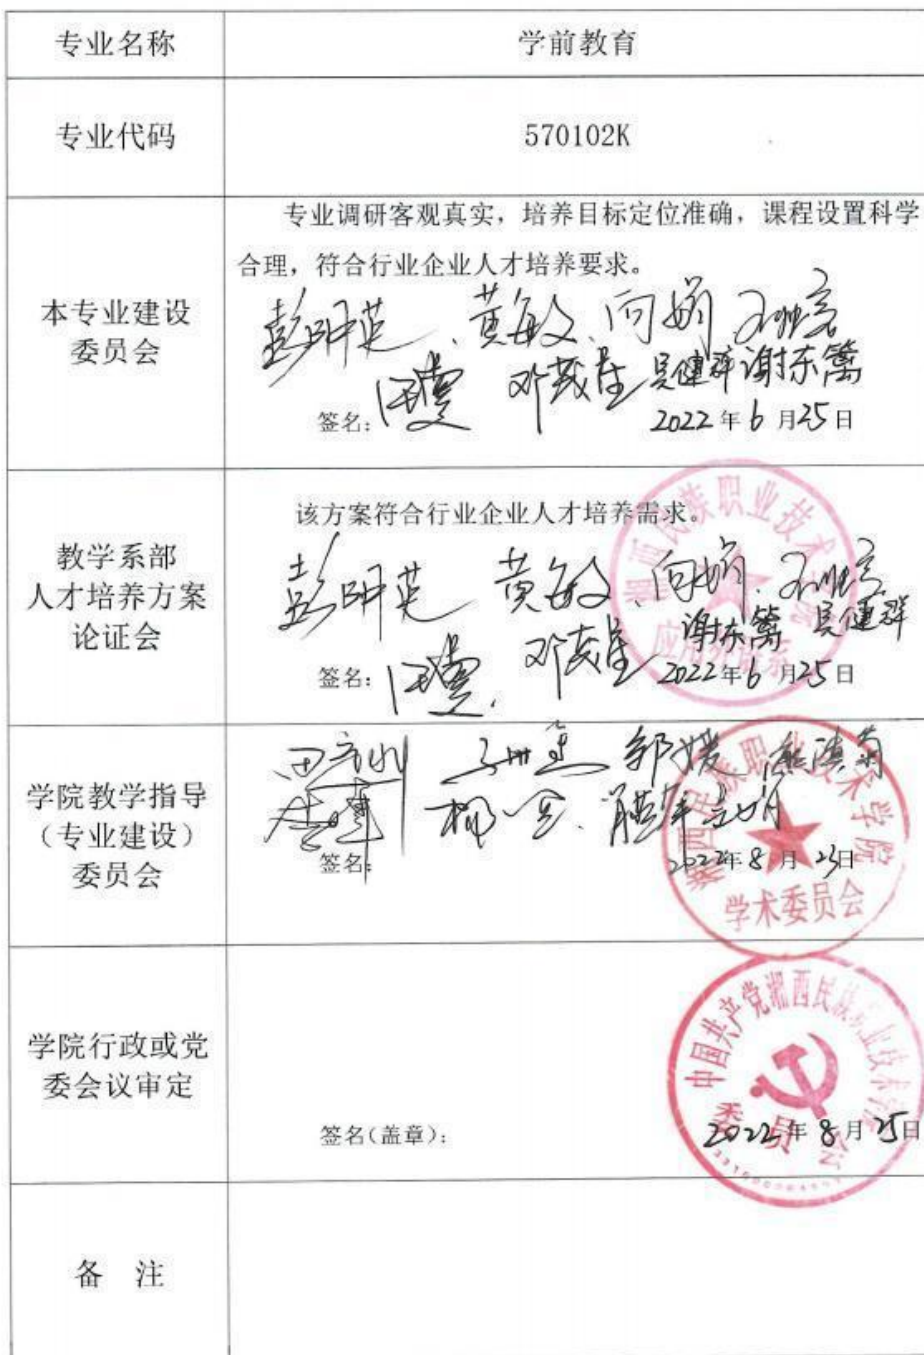 专业名称
学前教育
专业代码
570102K
本专业建设
委员会
专业调研客观真实，培养目标定位准确，课程设置科学
合理，符合行业企业人才培养要求。
彭明英、黄敏、向娟
邓茂生 吴健群 谢东篱
签名：
2022年6月25日
教学系部
人才培养方案
论证会
该方案符合行业企业人才培养需求。
彭明英 黄敏、向娟
邓茂生 谢东篱 吴健群
签名：
2022年6月25日
湘西民族职业技术学院
学院教学指导
（专业建设）
委员会
郭媛
签名：
2022年8月23日
湘西民族职业技术学院
学术委员会
学院行政或党
委会议审定
签名(盖章)：
2022年8月25日
中国共产党湘西民族职业技术学院
委员会
备 注